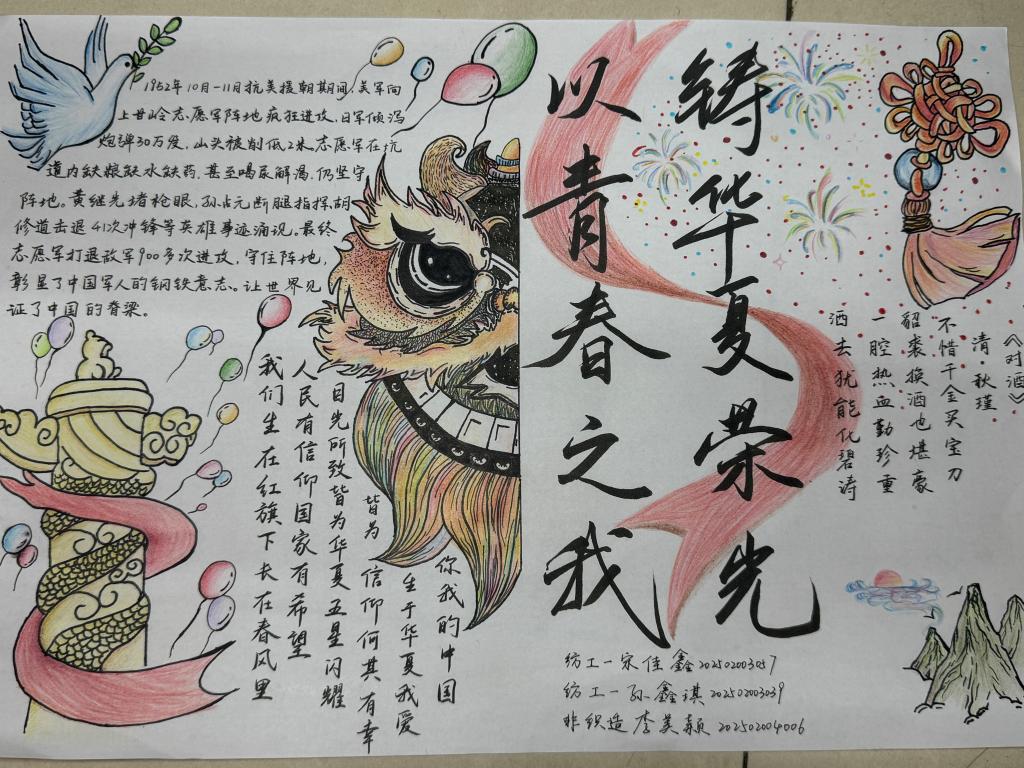 1952年10月-11月抗美援朝期间,美军向
上甘岭志愿军阵地疯狂进攻,日军倾泻
炮弹30万发,山头被削低2米志愿军在坑
道内缺粮缺水缺药,甚至喝尿解渴,仍坚守
阵地。黄继光堵枪眼,孙占元断腿指挥,胡
修道击退41次冲锋等英雄事迹涌现。最终
志愿军打退敌军900多次进攻,守住阵地,
彰显了中国军人的钢铁意志。让世界见
证了中国的脊梁。
以青春之我
铸华夏荣光
《对酒》
清·秋瑾
不惜千金买宝刀
貂裘换酒也堪豪
一腔热血勤珍重
洒去犹能化碧涛
我们生在红旗下长在春风里
人民有信仰国家有希望
目光所致皆为华夏五星闪耀
皆为信仰何其有幸
生于华夏我爱
你我的中国
纺工一宋佳鑫202502003057
纺工一孙鑫琪202502003039
非织造李美颖202502004006